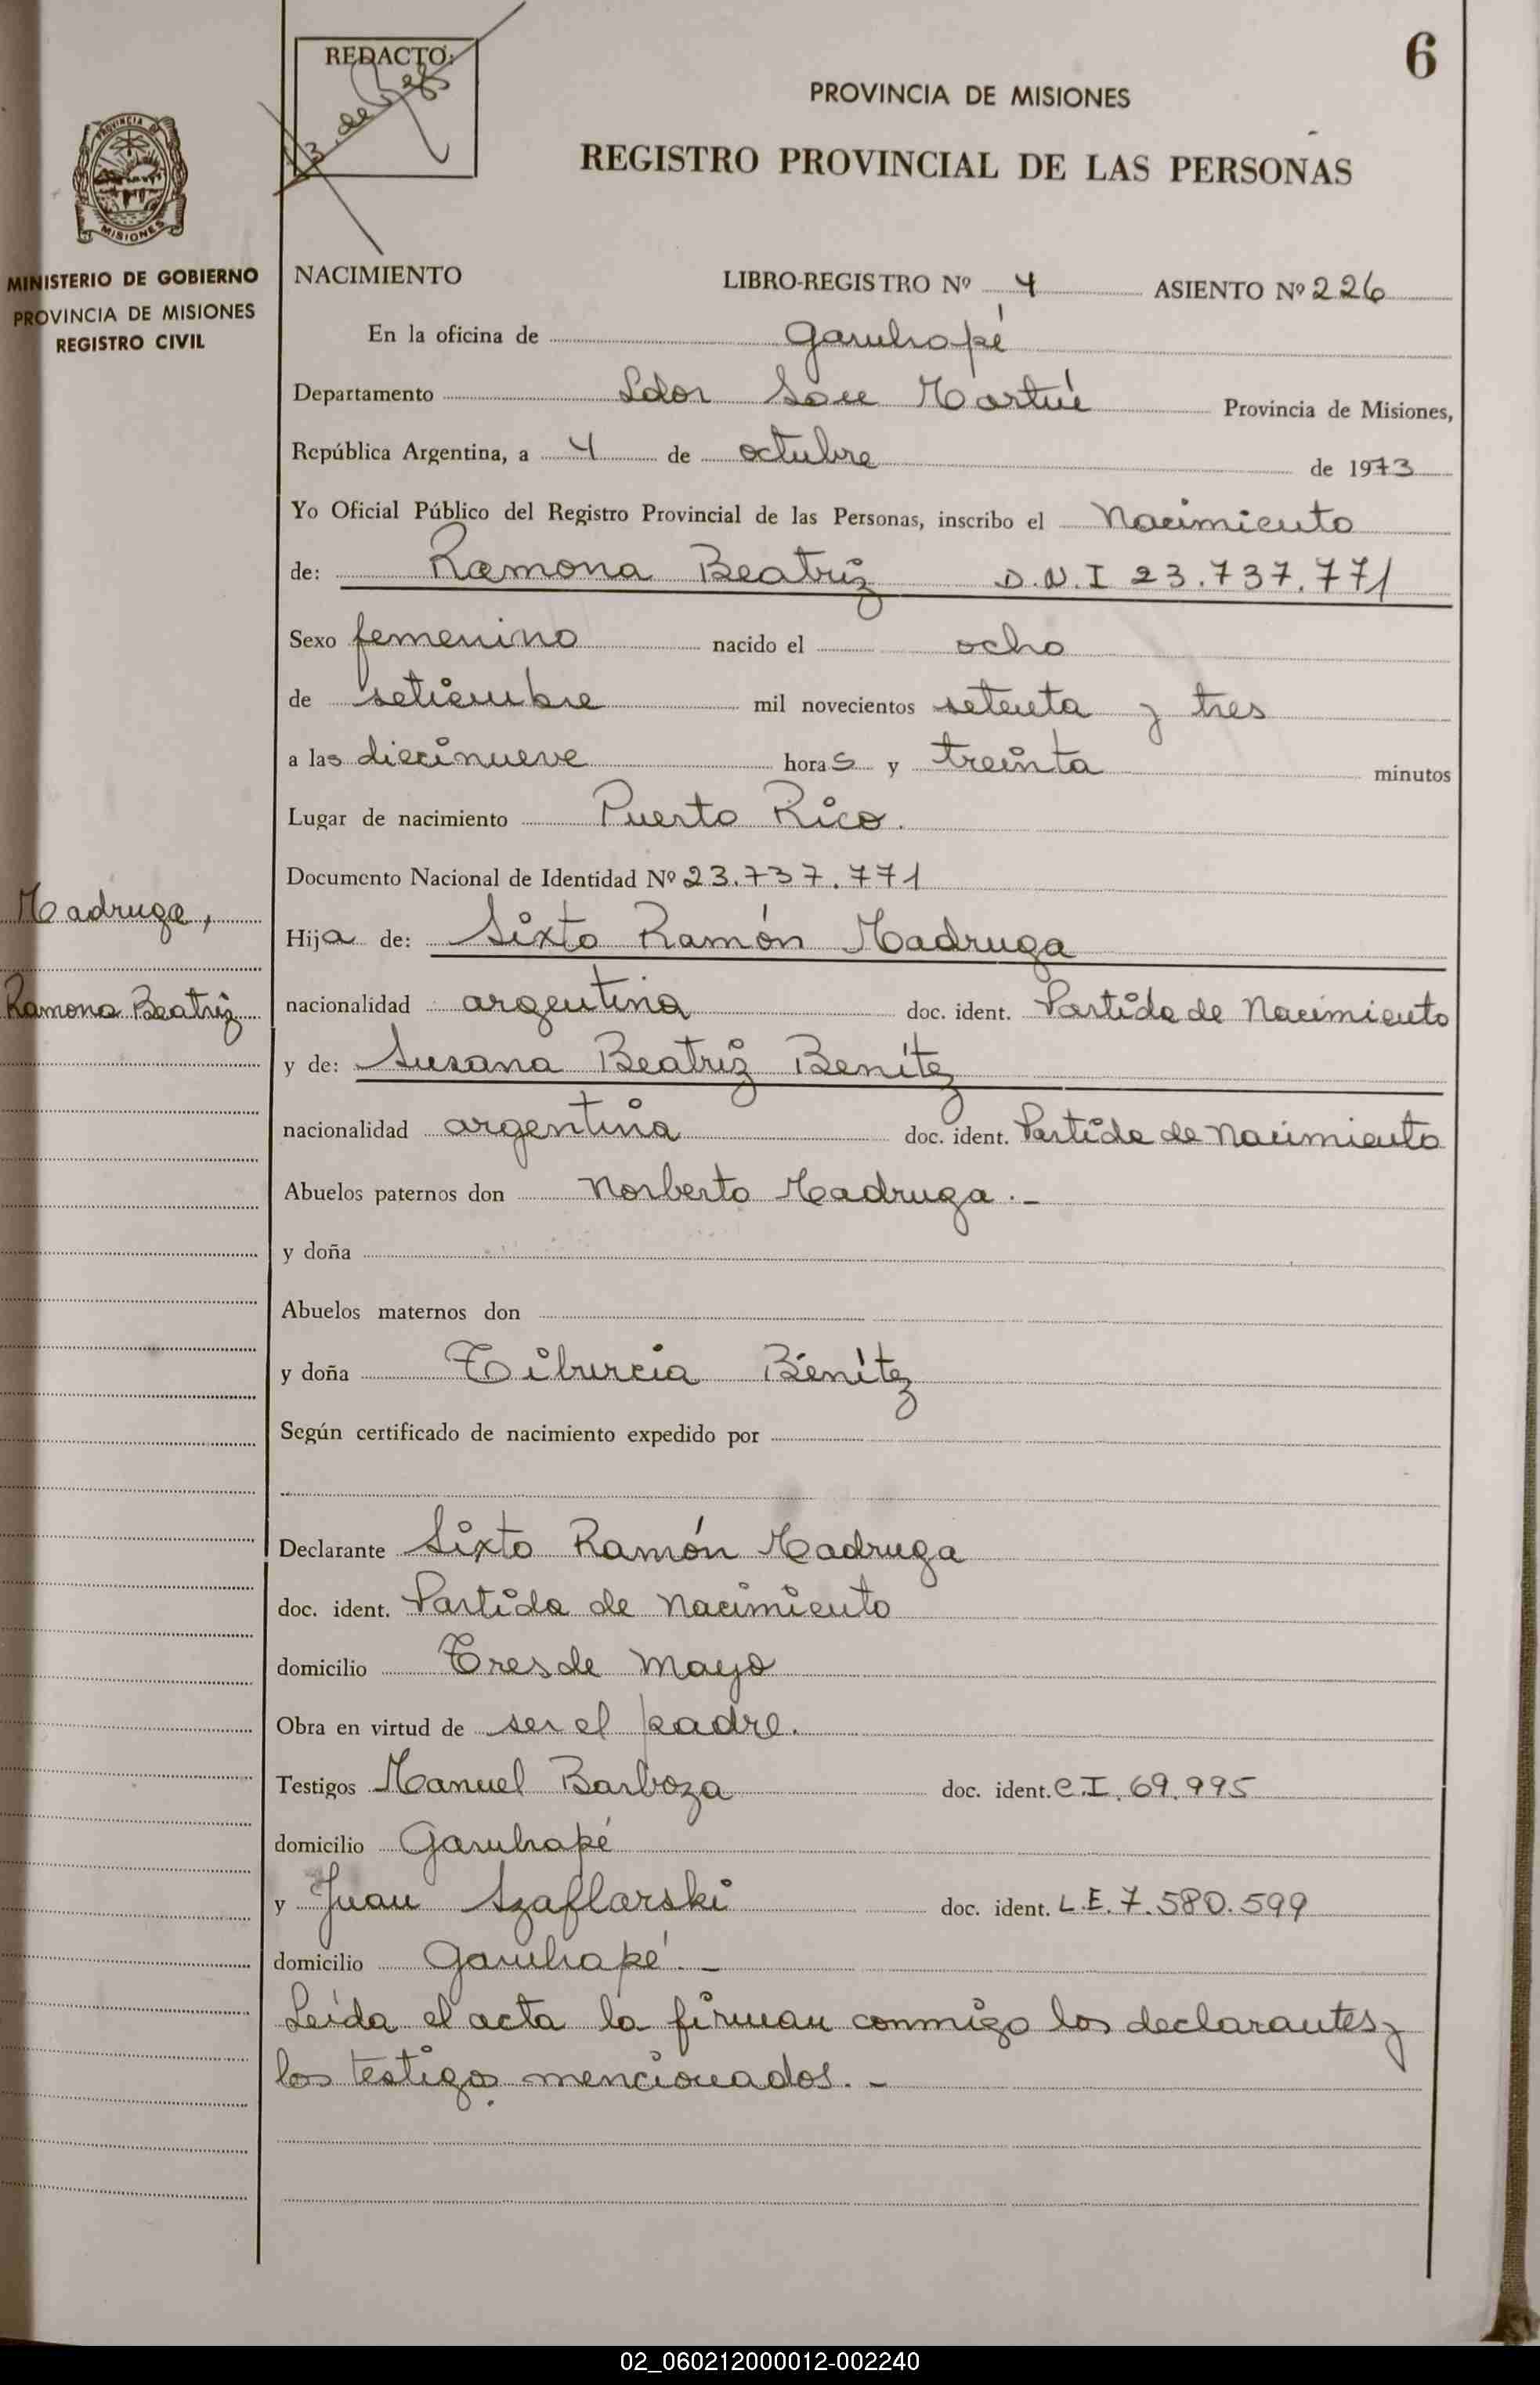 6
REDACTO:
PROVINCIA DE MISIONES
REGISTRO PROVINCIAL DE LAS PERSONAS
PROVINCIA DE
MISIONES
MINISTERIO DE GOBIERNO
PROVINCIA DE MISIONES
REGISTRO CIVIL
NACIMIENTO LIBRO-REGISTRO Nº 4 ASIENTO Nº 226
En la oficina de Garuhapé
Departamento Ldor San Martín Provincia de Misiones,
República Argentina, a 4 de octubre de 1973
Yo Oficial Público del Registro Provincial de las Personas, inscribo el Nacimiento
de: Ramona Beatriz D.N.I 23.737.771
Sexo femenino nacido el ocho
de setiembre mil novecientos setenta y tres
a las diecinueve horas y treinta minutos
Lugar de nacimiento Puerto Rico.
Documento Nacional de Identidad Nº 23.737.771
Madruga,
Hija de: Sixto Ramón Madruga
Ramona Beatriz
nacionalidad argentina doc. ident. Partida de Nacimiento
y de: Susana Beatriz Benítez
nacionalidad argentina doc. ident. Partida de Nacimiento
Abuelos paternos don Norberto Madruga.-
y doña
Abuelos maternos don
y doña Tiburcia Benítez
Según certificado de nacimiento expedido por
Declarante Sixto Ramón Madruga
doc. ident. Partida de Nacimiento
domicilio Tres de Mayo
Obra en virtud de ser el padre.
Testigos Manuel Barboza doc. ident. C.I. 69.995
domicilio Garuhapé
y Juan Szaflarski doc. ident. L.E. 7.580.599
domicilio Garuhapé.-
Leída el acta la firman conmigo los declarantes y
los testigos mencionados.-
02_060212000012-002240